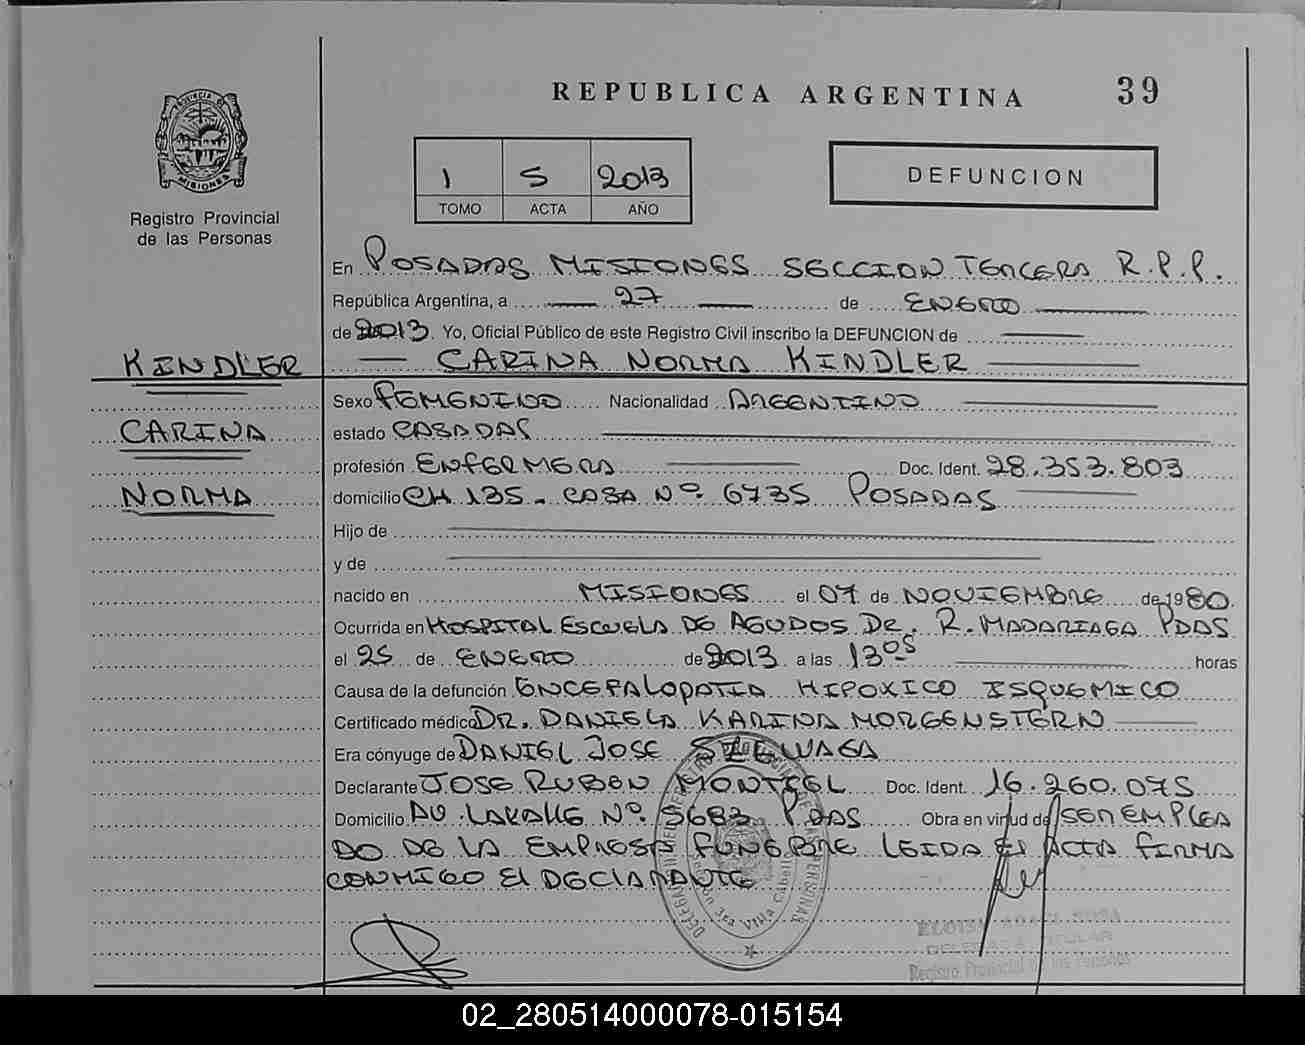 REPUBLICA ARGENTINA 39
PROVINCIA DE
MISIONES
Registro Provincial
de las Personas
1 5 2013
TOMO ACTA AÑO
DEFUNCION
En POSADAS MISIONES SECCION TERCERA R.P.P.
República Argentina, a 27 de ENERO
de 2013. Yo, Oficial Público de este Registro Civil inscribo la DEFUNCION de
CARINA NORMA KINDLER
KINDLER
CARINA
NORMA
Sexo FEMENINO Nacionalidad ARGENTINO
estado CASADAS
profesión ENFERMERA Doc. Ident. 28.353.803
domicilio CH 135 - CASA Nº. 6735 POSADAS
Hijo de
y de
nacido en MISIONES el 07 de NOVIEMBRE de 1980.
Ocurrida en HOSPITAL ESCUELA DE AGUDOS DR. R. MADARIAGA PDAS
el 25 de ENERO de 2013 a las 13 05 horas
Causa de la defunción ENCEFALOPATIA HIPOXICO ISQUEMICO
Certificado médico DR. DANIELA KARINA MORGENSTERN
Era cónyuge de DANIEL JOSE
Declarante JOSE RUBEN MONTIEL Doc. Ident. 16.260.075
Domicilio AV. LAVALLE Nº. 5683 PDAS Obra en virtud de SER EMPLEA
DO DE LA EMPRESA FUNEBRE LEIDA EL ACTA FIRMA
CONMIGO EL DECLARANTE
Sección 3ra Villa Cabello
Registro Provincial de las Personas
02_280514000078-015154